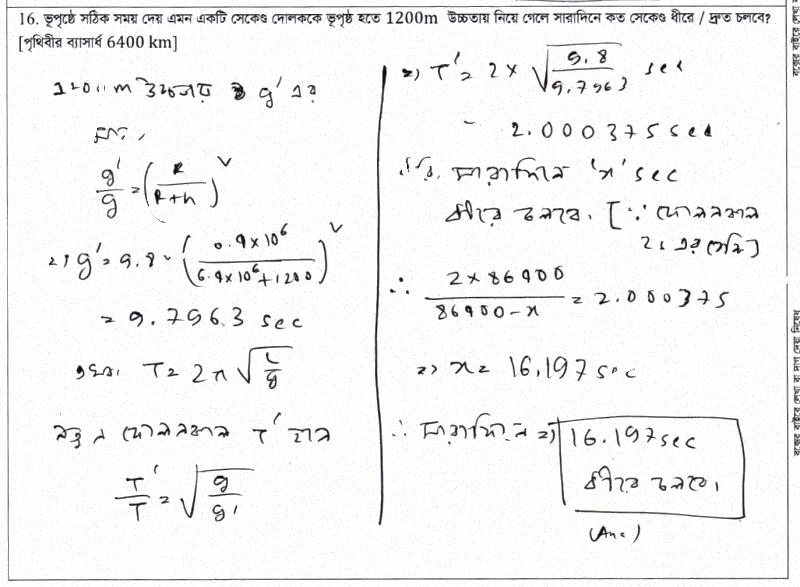 16. ভূপৃষ্ঠে সঠিক সময় দেয় এমন একটি সেকেন্ড দোলককে ভূপৃষ্ঠ হতে 1200m উচ্চতায় নিয়ে গেলে সারাদিনে কত সেকেন্ড ধীরে / দ্রুত চলবে?
[পৃথিবীর ব্যাসার্ধ 6400 km]
1200m উচ্চতায় g' এর
মান,
g'/g = (R/(R+h))²
=> g' = 9.8 × (6.4×10⁶/(6.4×10⁶+1200))²
= 9.7963 sec
এখন, T = 2π √(L/g)
নতুন দোলনকাল T' হলে
T'/T = √(g/g')
=> T' = 2 × √(9.8/9.7963) sec
= 2.000375 sec
ধরি, সারাদিনে 'x' sec
ধীরে চলবে। [∵ দোলনকাল
2s এর বেশি]
∴ (2 × 86400)/(86400-x) = 2.000375
=> x = 16.197 sec
∴ সারাদিনে => 16.197 sec
ধীরে চলবে।
(Ans)